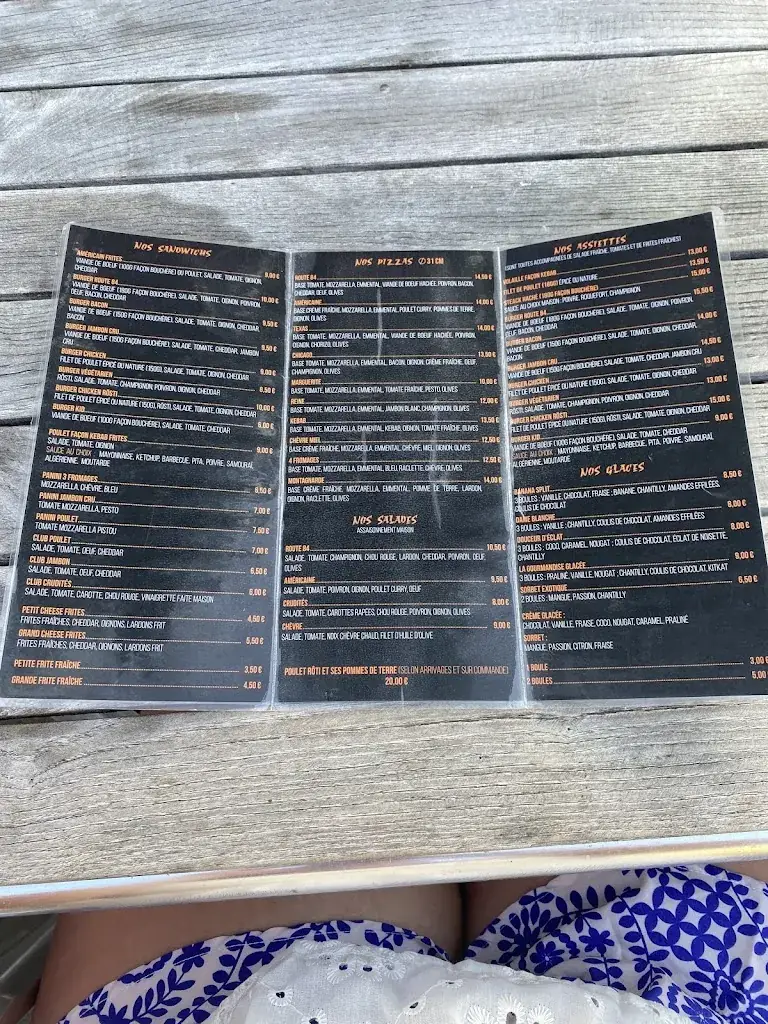 NOS SANDWICHS
AMÉRICAIN FRITES 9,00 €
VIANDE DE BOEUF (100G FAÇON BOUCHÈRE) OU POULET, SALADE, TOMATE, OIGNON,
CHEDDAR
BURGER ROUTE 84 10,00 €
VIANDE DE BOEUF (100G FAÇON BOUCHÈRE), SALADE, TOMATE, OIGNON, POIVRON,
OEUF, BACON, CHEDDAR
BURGER BACON 9,50 €
VIANDE DE BOEUF (100G FAÇON BOUCHÈRE), SALADE, TOMATE, OIGNON, CHEDDAR,
BACON
BURGER JAMBON CRU 9,50 €
VIANDE DE BOEUF (100G FAÇON BOUCHÈRE), SALADE, TOMATE, CHEDDAR, JAMBON
CRU
BURGER CHICKEN 9,00 €
FILET DE POULET ÉPICÉ OU NATURE (150G), SALADE, TOMATE, OIGNON, CHEDDAR
BURGER VÉGÉTARIEN 8,50 €
RÖSTI, SALADE, TOMATE, CHAMPIGNON, POIVRON, OIGNON, CHEDDAR
BURGER CHICKEN RÖSTI 10,00 €
FILET DE POULET ÉPICÉ OU NATURE (150G), RÖSTI, SALADE, TOMATE, OIGNON, CHEDDAR
BURGER KID 6,00 €
VIANDE DE BOEUF (100G FAÇON BOUCHÈRE), SALADE, TOMATE, CHEDDAR
POULET FAÇON KEBAB FRITES 9,00 €
SALADE, TOMATE, OIGNON
SAUCE AU CHOIX : MAYONNAISE, KETCHUP, BARBECUE, PITA, POIVRE, SAMOURAÏ,
ALGÉRIENNE, MOUTARDE
PANINI 3 FROMAGES 6,50 €
MOZZARELLA, CHÈVRE, BLEU
PANINI JAMBON CRU 7,00 €
TOMATE, MOZZARELLA, PESTO
PANINI POULET 7,50 €
TOMATE MOZZARELLA PISTOU
CLUB POULET 7,00 €
SALADE, TOMATE, OEUF, CHEDDAR
CLUB JAMBON 6,50 €
SALADE, TOMATE, OEUF, CHEDDAR
CLUB CRUDITÉS 6,00 €
SALADE, TOMATE, CAROTTE, CHOU ROUGE, VINAIGRETTE FAITE MAISON
PETIT CHEESE FRITES 4,50 €
FRITES FRAÎCHES, CHEDDAR, OIGNONS, LARDONS FRIT
GRAND CHEESE FRITES 5,50 €
FRITES FRAÎCHES, CHEDDAR, OIGNON, LARDONS FRIT
PETITE FRITE FRAÎCHE 3,50 €
GRANDE FRITE FRAÎCHE 4,50 €
NOS PIZZAS ∅31CM
ROUTE 84 14,50 €
BASE TOMATE, MOZZARELLA, EMMENTAL, VIANDE DE BOEUF HACHÉE, POIVRON, BACON,
CHEDDAR, OEUF, OLIVES
AMÉRICAINE 14,00 €
BASE CRÈME FRAÎCHE, MOZZARELLA, EMMENTAL, POULET CURRY, POMMES DE TERRE,
OIGNON, OLIVES
TEXAS 14,00 €
BASE TOMATE, MOZZARELLA, EMMENTAL, VIANDE DE BOEUF HACHÉE, POIVRON,
OIGNON, CHORIZO, OLIVES
CHICAGO 13,50 €
BASE TOMATE, MOZZARELLA, EMMENTAL, BACON, OIGNON, CRÈME FRAÎCHE, OEUF,
CHAMPIGNON, OLIVES
MARGUERITE 10,00 €
BASE TOMATE, MOZZARELLA, EMMENTAL, TOMATE FRAÎCHE, PESTO, OLIVES
REINE 12,00 €
BASE TOMATE, MOZZARELLA, EMMENTAL, JAMBON BLANC, CHAMPIGNON, OLIVES
KEBAB 13,50 €
BASE TOMATE, MOZZARELLA, EMMENTAL, KEBAB, OIGNON, TOMATE FRAÎCHE, OLIVES
CHÈVRE MIEL 12,50 €
BASE CRÈME FRAÎCHE, MOZZARELLA, EMMENTAL, CHÈVRE, MIEL, OIGNON, OLIVES
4 FROMAGES 12,50 €
BASE TOMATE, MOZZARELLA, EMMENTAL, BLEU, RACLETTE, CHÈVRE, OLIVES
MONTAGNARDE 14,00 €
BASE CRÈME FRAÎCHE, MOZZARELLA, EMMENTAL, POMME DE TERRE, LARDON,
OIGNON, RACLETTE, OLIVES
NOS SALADES
ASSAISONNEMENT MAISON
ROUTE 84 10,50 €
SALADE, TOMATE, CHAMPIGNON, CHOU ROUGE, LARDON, CHEDDAR, POIVRON, OEUF,
OLIVES
AMÉRICAINE 9,50 €
SALADE, TOMATE, POIVRON, OIGNON, POULET CURRY, OEUF
CRUDITÉS 8,00 €
SALADE, TOMATE, CAROTTES RAPÉES, CHOU ROUGE, POIVRON, OIGNON, OLIVES
CHÈVRE 9,00 €
SALADE, TOMATE, NOIX, CHÈVRE CHAUD, FILET D'HUILE D'OLIVE
POULET RÔTI ET SES POMMES DE TERRE (SELON ARRIVAGES ET SUR COMMANDE)
20,00 €
NOS ASSIETTES
(SONT TOUTES ACCOMPAGNÉES DE SALADE FRAÎCHE, TOMATES ET DE FRITES FRAÎCHES)
VOLAILLE FAÇON KEBAB 13,00 €
FILET DE POULET (180G) ÉPICÉ OU NATURE 13,50 €
STEACK HACHÉ (180G FAÇON BOUCHÈRE) 15,00 €
SAUCE AU CHOIX MAISON : POIVRE, ROQUEFORT, CHAMPIGNON
BURGER ROUTE 84 15,50 €
VIANDE DE BOEUF (150G FAÇON BOUCHÈRE), SALADE, TOMATE, OIGNON, POIVRON,
OEUF, BACON, CHEDDAR
BURGER BACON 14,00 €
VIANDE DE BOEUF (150G FAÇON BOUCHÈRE), SALADE, TOMATE, OIGNON, CHEDDAR,
BACON
BURGER JAMBON CRU 14,50 €
VIANDE DE BOEUF (150G FAÇON BOUCHÈRE), SALADE, TOMATE, CHEDDAR, JAMBON CRU
BURGER CHICKEN 13,00 €
FILET DE POULET ÉPICÉ OU NATURE (150G), SALADE, TOMATE, OIGNON, CHEDDAR
BURGER VÉGÉTARIEN 13,00 €
RÖSTI, SALADE, TOMATE, CHAMPIGNON, POIVRON, OIGNON, CHEDDAR
BURGER CHICKEN RÖSTI 15,00 €
FILET DE POULET ÉPICÉ OU NATURE (150G), RÖSTI, SALADE, TOMATE, OIGNON, CHEDDAR
BURGER KID 9,00 €
VIANDE DE BOEUF (100G FAÇON BOUCHÈRE), SALADE, TOMATE, CHEDDAR
SAUCE AU CHOIX : MAYONNAISE, KETCHUP, BARBECUE, PITA, POIVRE, SAMOURAÏ,
ALGÉRIENNE, MOUTARDE
NOS GLACES
BANANA SPLIT 8,50 €
3 BOULES : VANILLE, CHOCOLAT, FRAISE ; BANANE, CHANTILLY, AMANDES EFFILÉES,
COULIS DE CHOCOLAT
DAME BLANCHE 8,00 €
3 BOULES : VANILLE ; CHANTILLY, COULIS DE CHOCOLAT, AMANDES EFFILÉES
DOUCEUR D'ÉCLAT 8,00 €
3 BOULES : COCO, CARAMEL, NOUGAT ; COULIS DE CHOCOLAT, ÉCLAT DE NOISETTE,
CHANTILLY
LA GOURMANDISE GLACÉE 9,00 €
3 BOULES : PRALINÉ, VANILLE, NOUGAT ; CHANTILLY, COULIS DE CHOCOLAT, KITKAT
SORBET EXOTIQUE 6,50 €
2 BOULES : MANGUE, PASSION, CHANTILLY
CRÈME GLACÉE :
CHOCOLAT, VANILLE, FRAISE, COCO, NOUGAT, CARAMEL, PRALINÉ
SORBET :
MANGUE, PASSION, CITRON, FRAISE
1 BOULE 3,00 €
2 BOULES 5,00